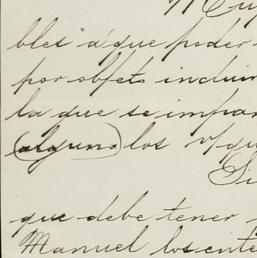 bles á que poder
por objeto incluir
la que se impar
(alguno) los
Si
que debe tener
Manuel los ente